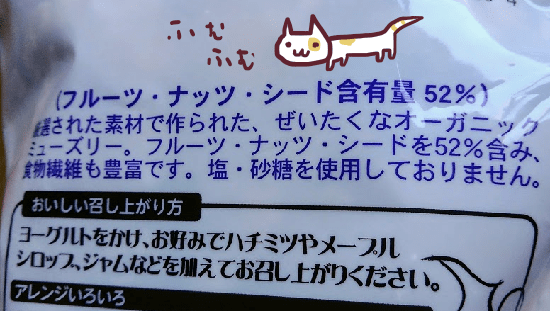 ふむ
ふむ
(フルーツ・ナッツ・シード含有量 52%)
厳選された素材で作られた、ぜいたくなオーガニック
ミューズリー。フルーツ・ナッツ・シードを52%含み、
食物繊維も豊富です。塩・砂糖を使用しておりません。
おいしい召し上がり方
ヨーグルトをかけ、お好みでハチミツやメープル
シロップ、ジャムなどを加えてお召し上がりください。
アレンジいろいろ